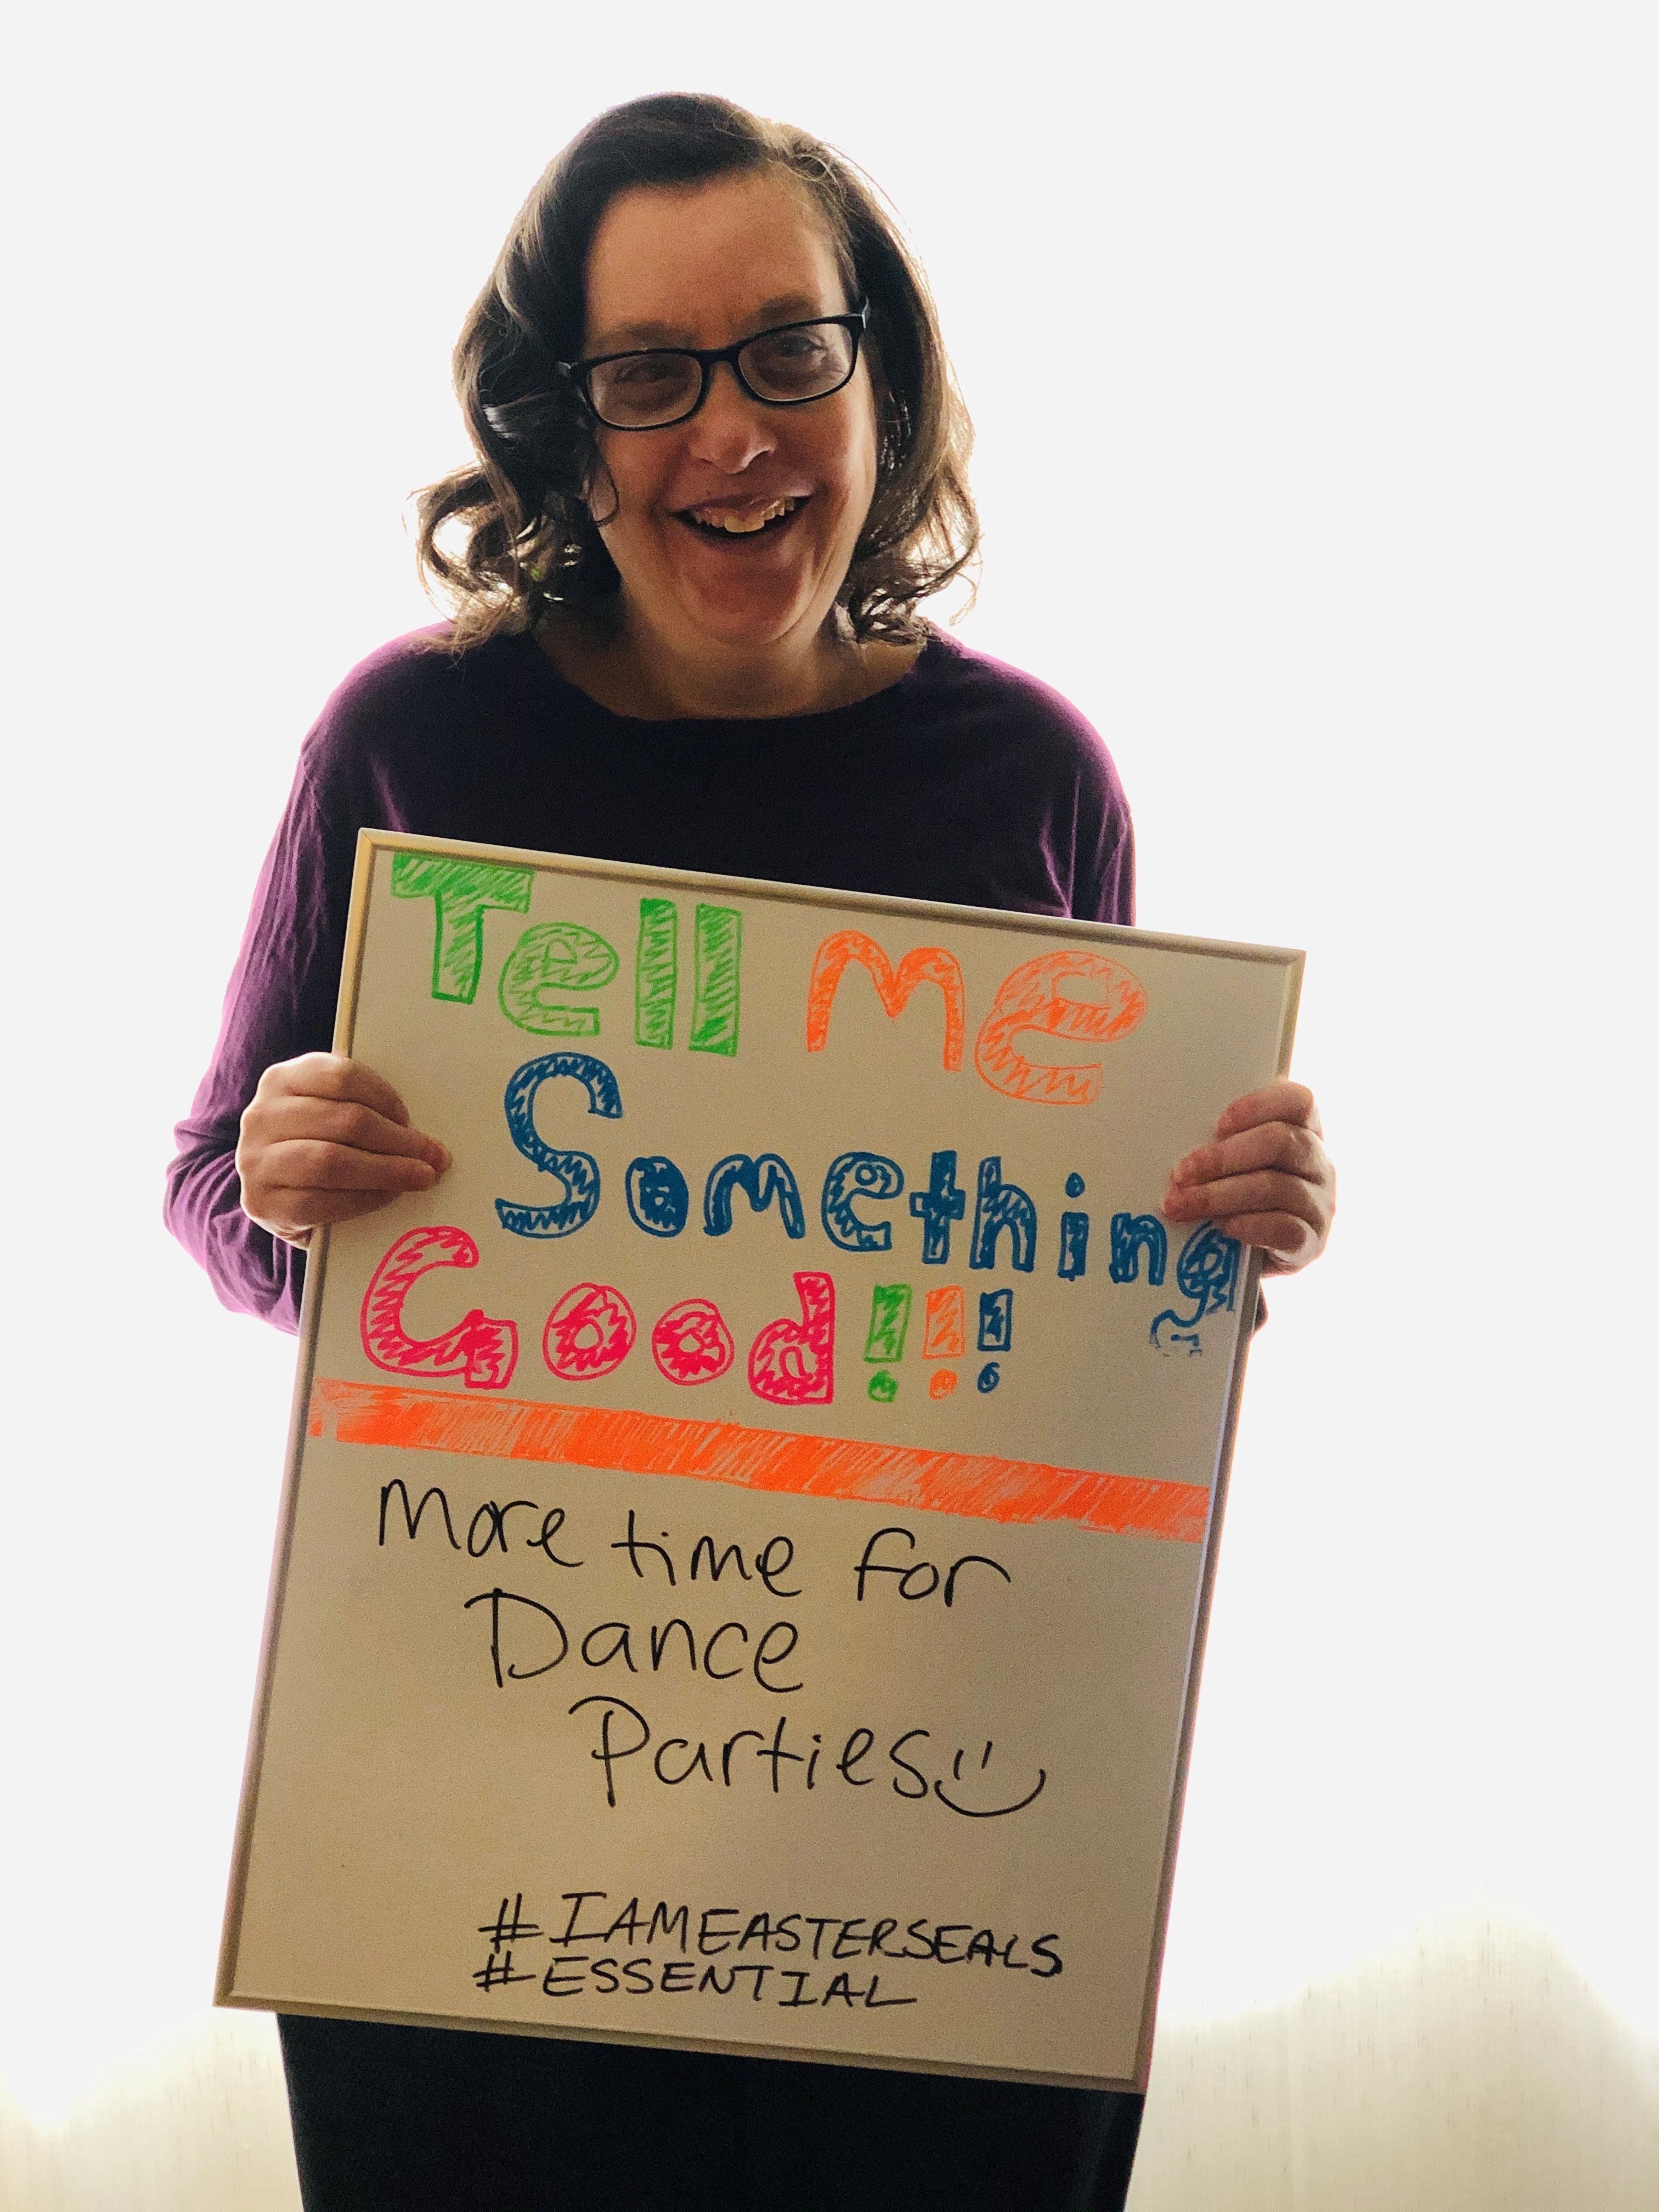 Tell me
Something
Good!!!
More time for
Dance
Parties
#IAMEASTERSEALS
#ESSENTIAL